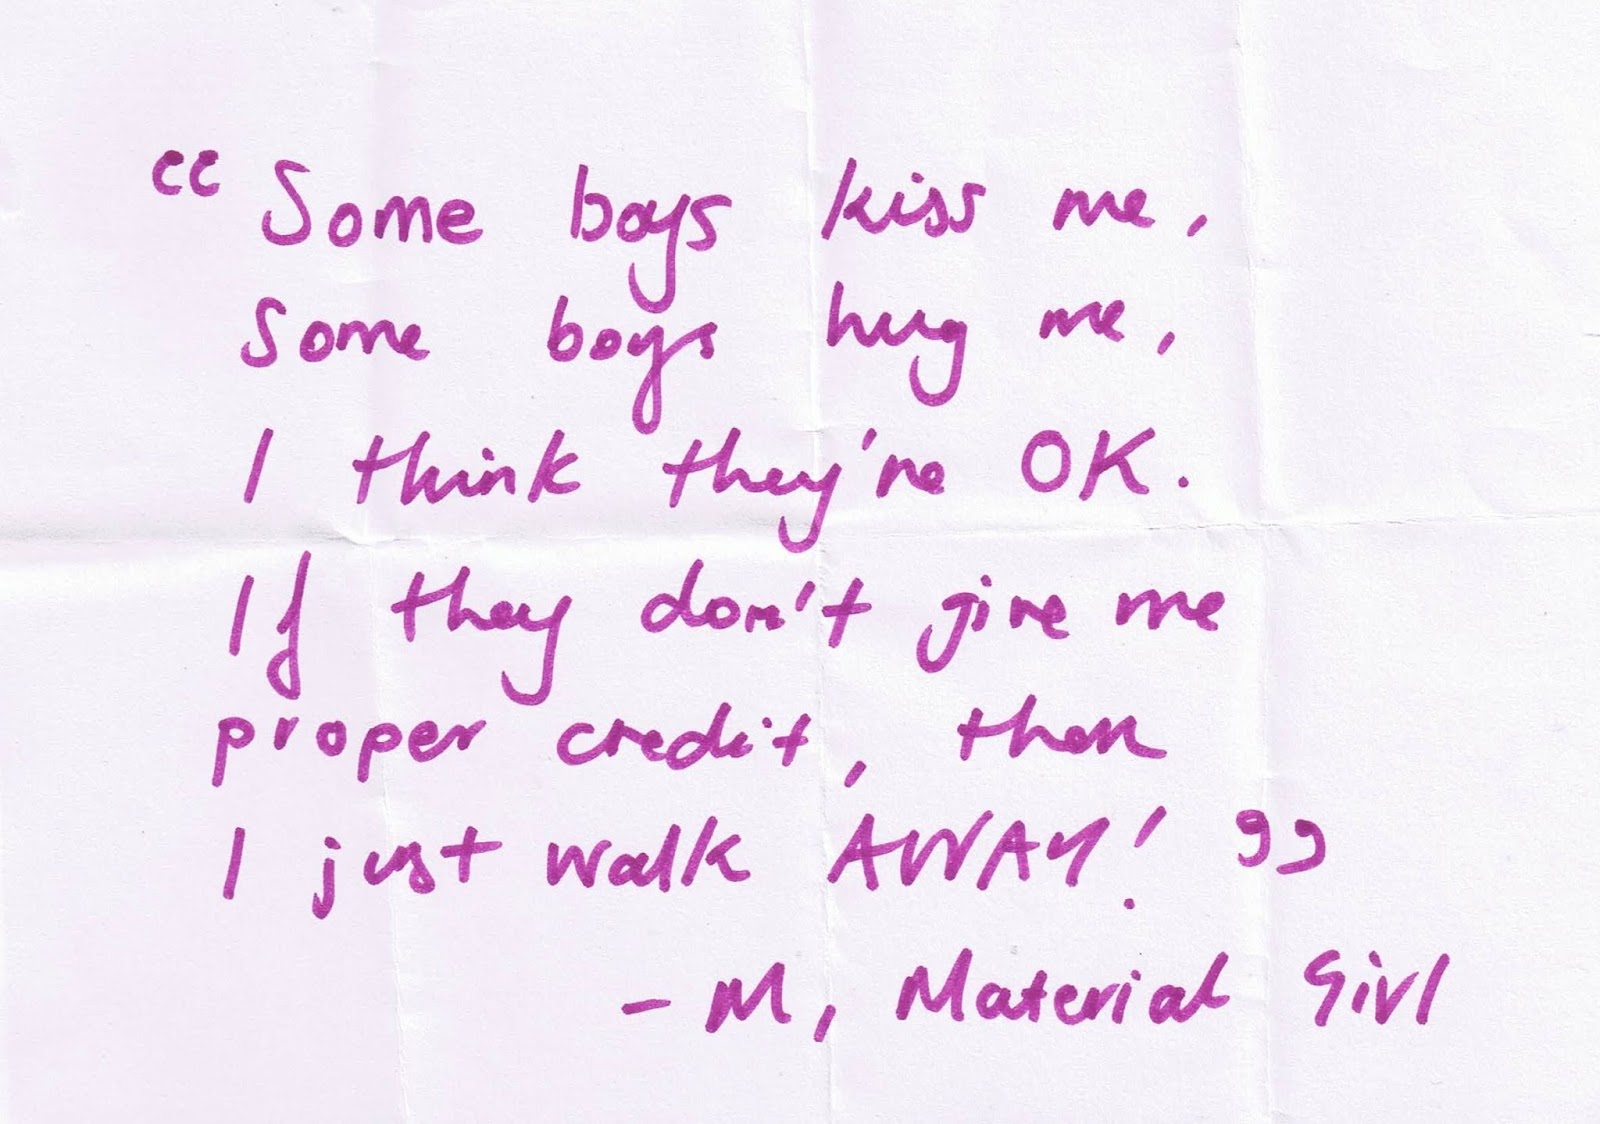 “Some boys kiss me,
Some boys hug me,
I think they're OK.
If they don't give me
proper credit, then
I just walk AWAY!”
- M, Material Girl